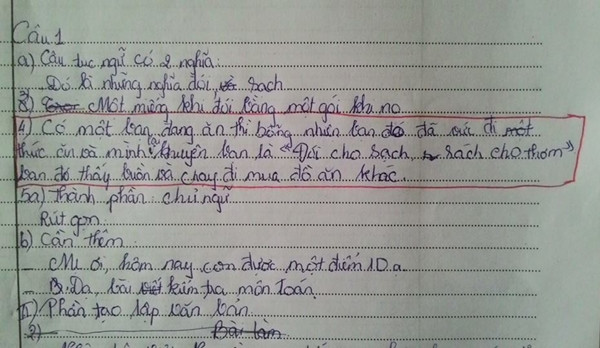 Câu 1
a) Câu tục ngữ có 2 nghĩa:
Đó là những nghĩa đói, sạch
3) Một miếng khi đói bằng một gói khi no
4) Có một bạn đang ăn thì bỗng nhiên bạn đó đã vứt đi một
thức ăn và mình khuyên bạn là "Đói cho sạch, rách cho thơm"
bạn đó thấy buồn và chạy đi mua đồ ăn khác.
5a) Thành phần: chủ ngữ
Rút gọn
b) Cần thêm:
- Mẹ ơi, hôm nay con được một điểm 10 ạ.
- Dạ, bài kiểm tra môn Toán.
II) Phần tạo lập văn bản
2) Bài làm